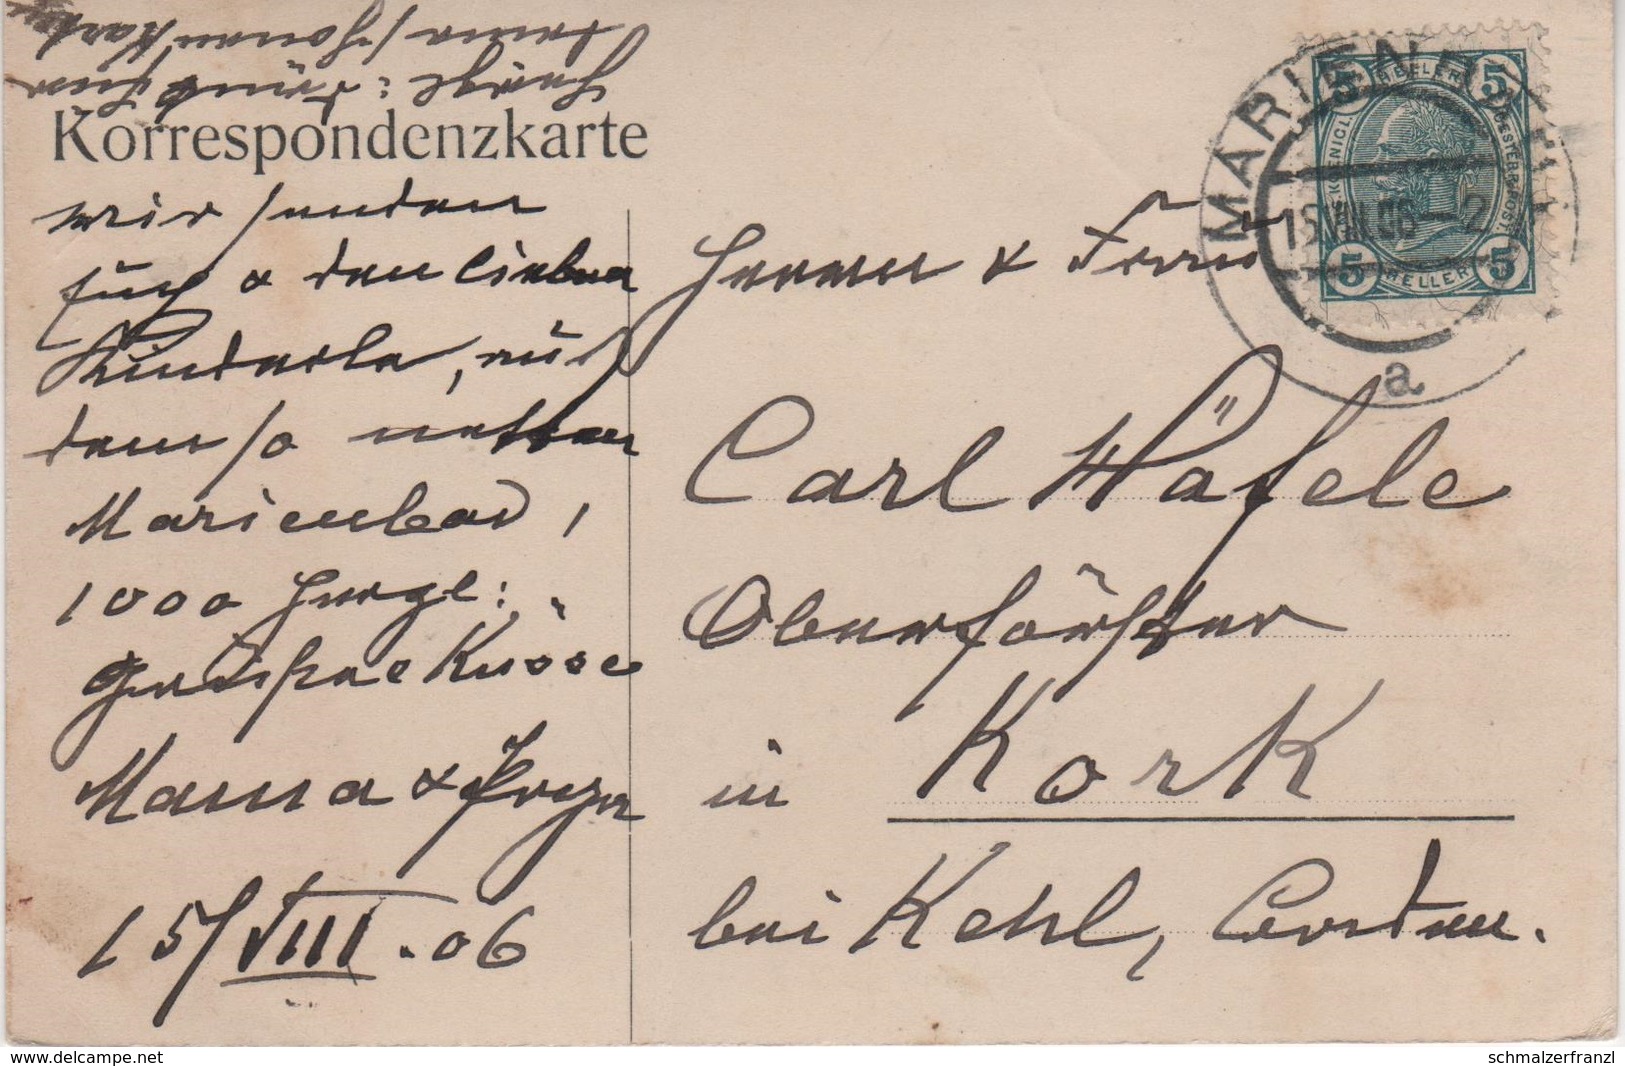 Herzl: Dank für
Deine schönen Karten
Korrespondenzkarte
wir senden
Euch & den lieben
Kinderle, aus
dem so netten
Marienbad,
1000 Herzl:
Grüße & Küsse
Mama &
15/VIII.06
Herrn & Frau
Carl Wäfele
Oberförster
in Kork
bei Kehl, Baden.
MARIENBAD
15 VIII 06 - 2
a
5 HELLER 5
5 HELLER 5
www.delcampe.net
schmalzerfranzl